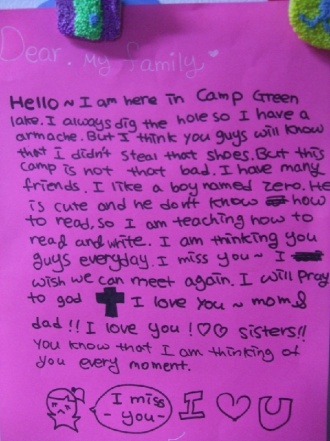 Dear. My family
Hello ~ I am here in Camp Green
lake. I always dig the hole so I have a
armache. But I think you guys will know
that I didn't steal that shoes. But this
camp is not that bad. I have many
friends. I like a boy named zero. He
is cute and he don't know how
to read, so I am teaching how to
read and write. I am thinking you
guys everyday. I miss you ~ I
wish we can meet again. I will pray
to god ✝ I love you ~ mom &
dad!! I love you! ♡♡ sisters!!
you know that I am thinking of
you every moment.
I miss
- you -
I ♡ U